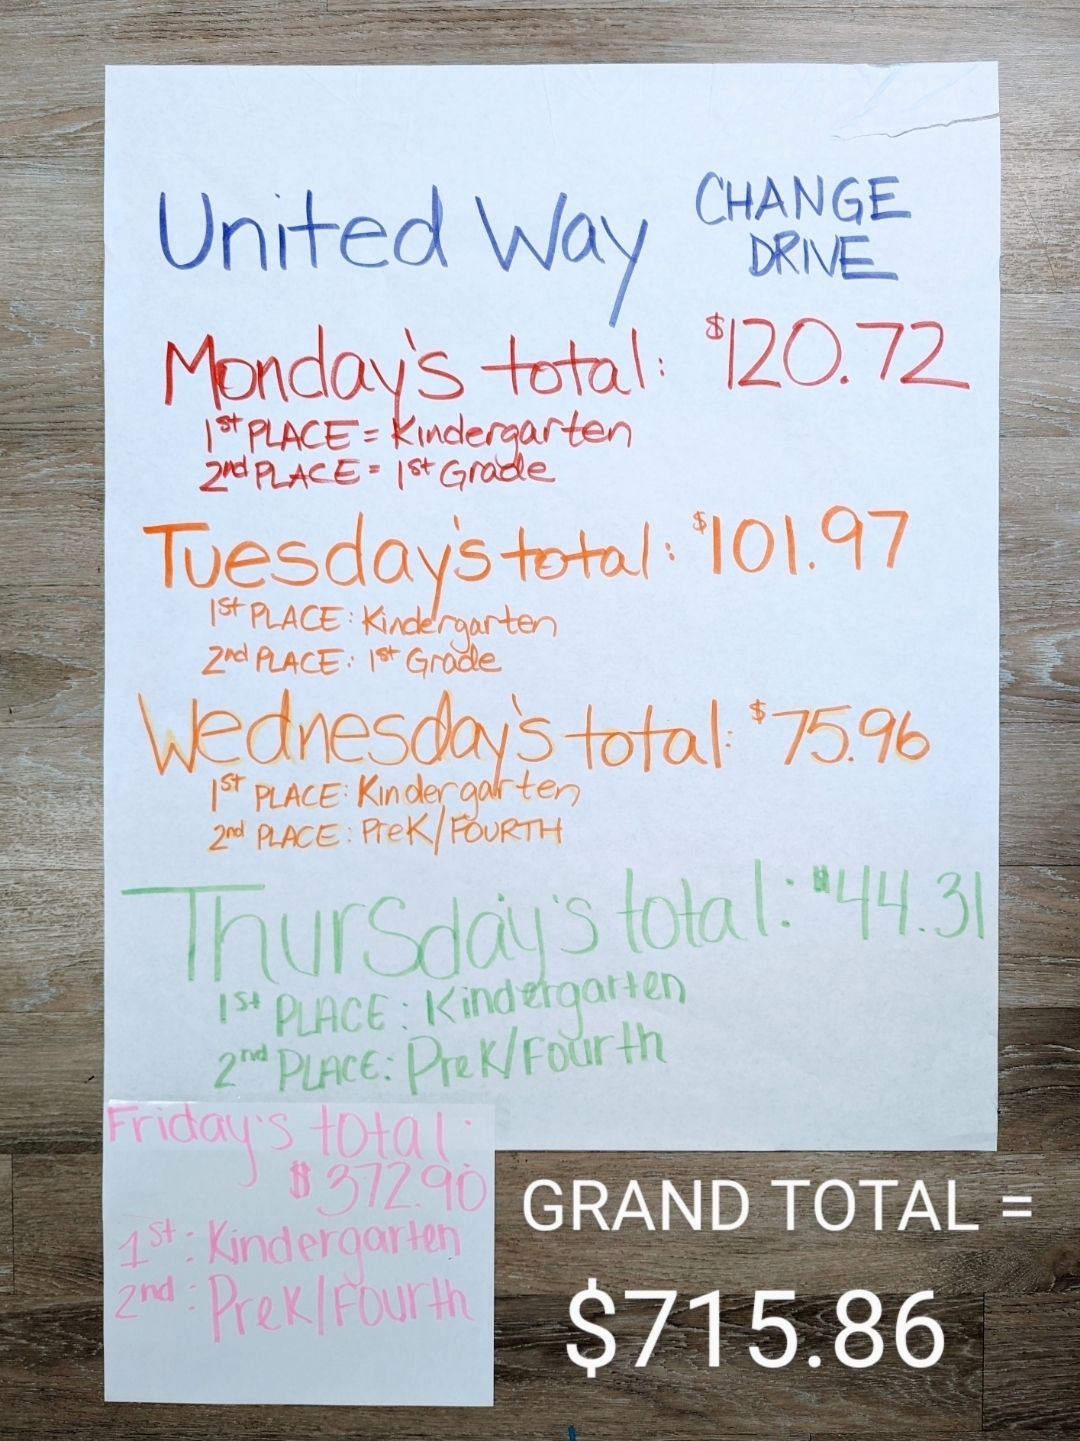 United Way CHANGE DRIVE
Monday's total: $120.72
1st PLACE = Kindergarten
2nd PLACE = 1st Grade
Tuesday's total: $101.97
1st PLACE: Kindergarten
2nd PLACE: 1st Grade
Wednesday's total: $75.96
1st PLACE: Kindergarten
2nd PLACE: PreK/FOURTH
Thursday's total: $44.31
1st PLACE: Kindergarten
2nd PLACE: PreK/Fourth
Friday's total:
$372.90
1st: Kindergarten
2nd: PreK/Fourth
GRAND TOTAL =
$715.86